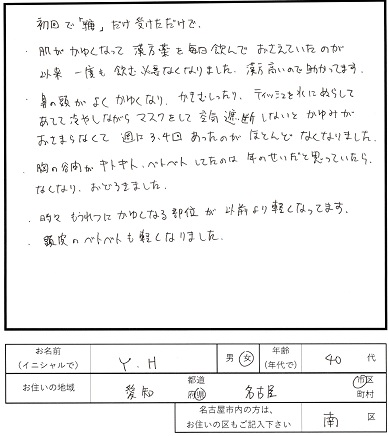 初回で「鍼」だけ受けただけで、
・肌がかゆくなって漢方薬を毎日飲んでおさえていたのが
以来一度も飲む必要なくなりました。漢方高いので助かってます。
・鼻の頭がよくかゆくなり、かきむしったり、ティッシュを水にぬらして
あてて冷やしながらマスクをして空気遮断しないとかゆみが
おさまらなくて週に3,4回あったのがほとんどなくなりました。
・胸の谷間がギトギト、ベトベトしてたのは年のせいだと思っていたら、
なくなり、おどろきました。
・時々もうれつにかゆくなる部位が以前より軽くなってます。
・頭皮のベトベトも軽くなりました。
お名前
(イニシャルで)
Y.H
男 女
年齢
(年代で)
40 代
お住いの地域
愛知
都道
府県
名古屋
市区
町村
名古屋市内の方は、
お住いの区もご記入下さい
南 区